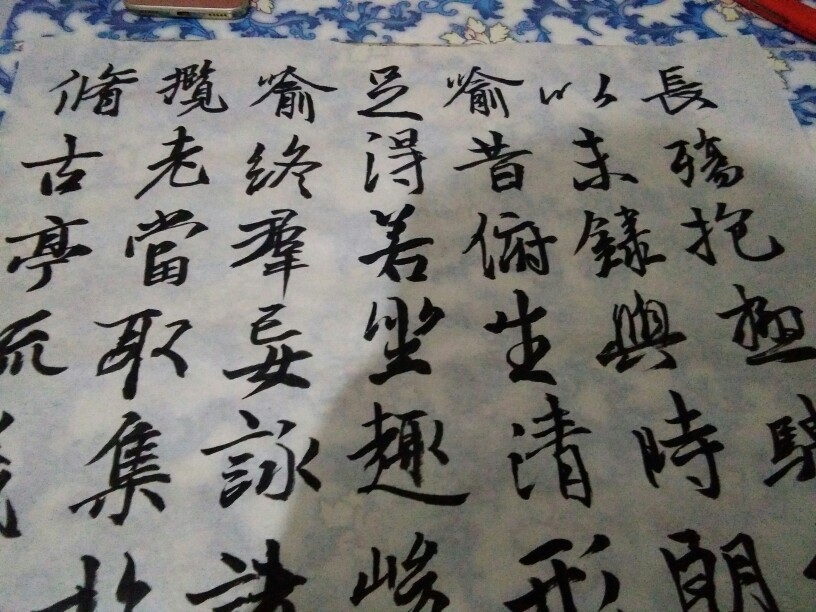 脩攬喻足喻以長
古老終得昔未殤
亭當羣若俯錄抱
流取妄坐生與極
集詠趣清時騁
諸峻形朗